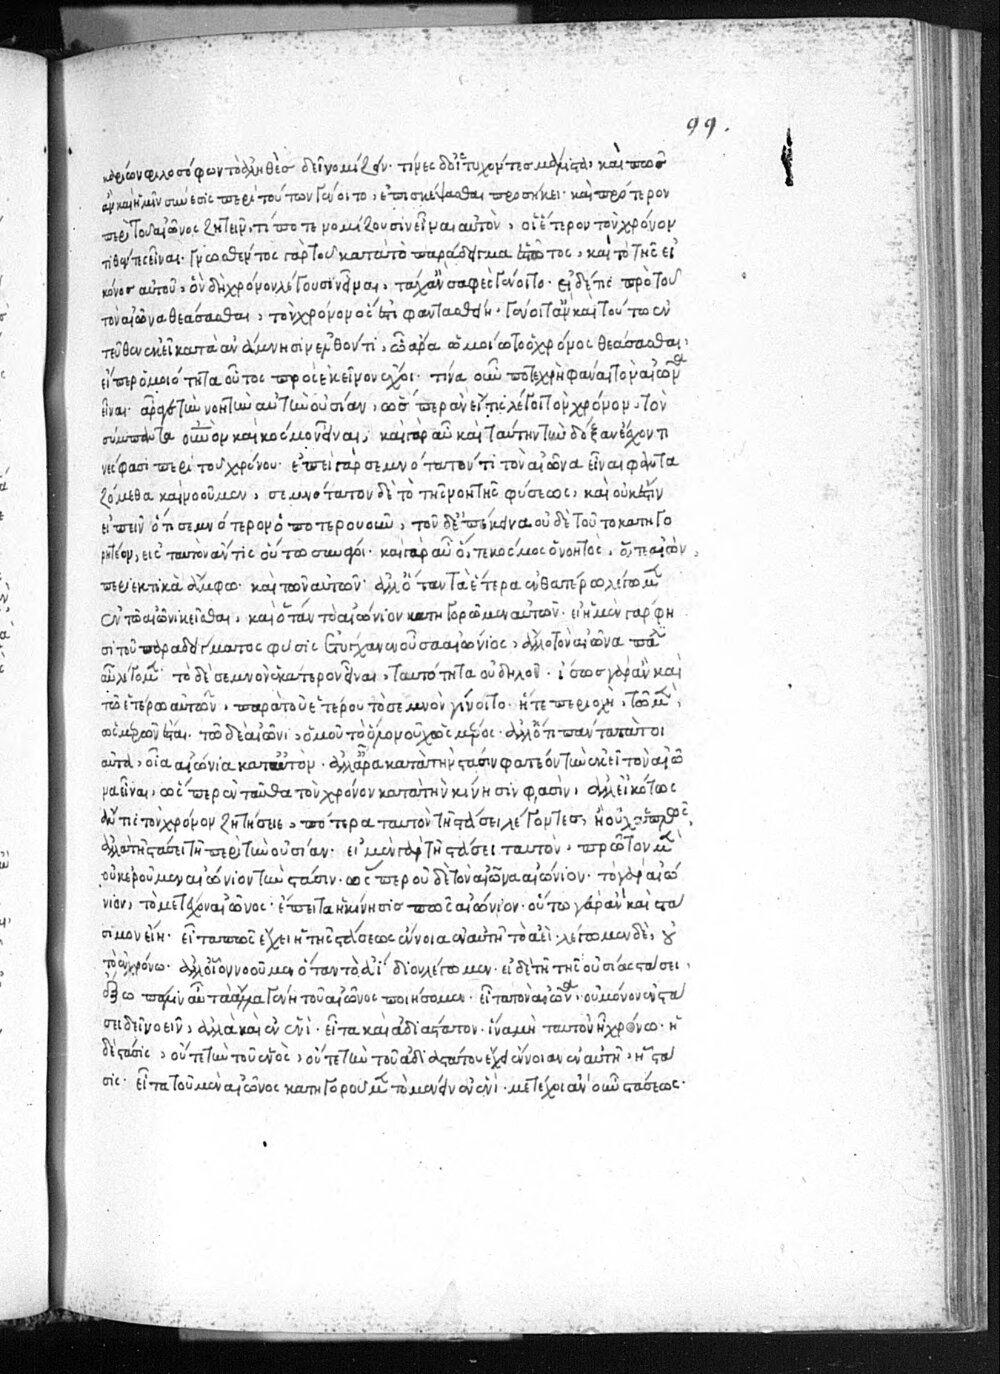 καρίων φιλοσόφων τὸ ἀληθὲς δεῖ νομίζειν· τίνες δ' οἱ τυχόντες μάλιστα, καὶ πῶς
ἂν καὶ ἡμῖν σύνεσις περὶ τούτων γένοιτο, ἐπισκέψασθαι προσήκει· καὶ πρότερον
περὶ τοῦ αἰῶνος ζητεῖν, τί ποτε νομίζουσιν εἶναι αὐτὸν, οἱ ἕτερον τὸν χρόνον
τιθέντες εἶναι· γνωσθέντος γὰρ τοῦ κατὰ τὸ παράδειγμα ἑστῶτος, καὶ τὸ τῆς εἰ
κόνος αὐτοῦ, ὃν δὴ χρόνον λέγουσιν εἶναι, τάχ' ἂν σαφὲς γένοιτο· εἰ δέ τις πρὸ τοῦ
τὸν αἰῶνα θεάσασθαι, τὸν χρόνον ὅς ἐστι φαντασθείη· γένοιτ' ἂν καὶ τούτω ἐν
τεῦθεν ἐκεῖ κατὰ ἀνάμνησιν ἐλθόντι, ὧ ἄρα ὡμοίωτο ὁ χρόνος θεάσασθαι,
εἴπερ ὁμοιότητα οὗτος πρὸς ἐκεῖνον ἔχοι· τίνα οὖν ποτε χρὴ φάναι τὸν αἰῶνα
εἶναι· ἆρά γε τὴν νοητὴν αὐτὴν οὐσίαν, ὥσπερ ἂν εἴ τις λέγοι τὸν χρόνον, τὸν
σύμπαντα οὐρανὸν καὶ κόσμον εἶναι, καὶ γὰρ αὖ καὶ ταύτην τὴν δόξαν ἔσχόν τι
νές φασι περὶ τοῦ χρόνου· ἐπεὶ γὰρ σεμνότατόν τι τὸν αἰῶνα εἶναι φαντα
ζόμεθα καὶ νοοῦμεν, σεμνότατον δὲ τὸ τῆς νοητῆς φύσεως, καὶ οὐκ ἔστιν
εἰπεῖν ὅ τι σεμνότερον ὁποτερουοῦν, τοῦ δ' ἐπέκεινα οὐδὲ τοῦτο κατηγο
ρητέον, εἰς ταὐτὸν ἄν τις οὕτω συνάγοι· καὶ γὰρ αὖ ὅ, τε κόσμος ὁ νοητὸς, ὅ, τε αἰὼν,
περιεκτικὰ ἄμφω· καὶ τῶν αὐτῶν· ἀλλ' ὅταν τὰ ἕτερα ἐν θατέρω λέγωμεν
ἐν τῶ αἰῶνι κεῖσθαι, καὶ ὅταν τὸ αἰώνιον κατηγορῶμεν αὐτῶν· εἰ ἡ μὲν γάρ φη
σι τοῦ παραδείγματος φύσις ἐτύγχανεν οὖσα αἰώνιος, ἄλλο τὸν αἰῶνα πάλιν
αὖ λέγομεν· τὸ δὲ σεμνὸν ἑκάτερον εἶναι, ταυτότητα οὐ δηλοῖ· ἴσως γὰρ ἂν καὶ
τῶ ἑτέρω αὐτῶν, παρὰ τοῦ ἑτέρου τὸ σεμνὸν γίνοιτο· ἥ τε περιοχὴ, τῶ μὲν,
ὡς μερῶν ἔσται· τῶ δὲ αἰῶνι, ὁμοῦ τὸ ὅλον οὐχ ὡς μέρος· ἀλλ' ὅτι πάντα τὰ τοι
αῦτα, οἷα αἰώνια κατ' αὐτόν· ἀλλ' ἆρα κατὰ τὴν στάσιν φατέον τὴν ἐκεῖ τὸν αἰῶ
να εἶναι, ὥσπερ ἐνταῦθα τὸν χρόνον κατὰ τὴν κίνησιν φασὶν, ἀλλ' εἰκότως
ἄν τις τὸν χρόνον ζητήσειε, πότερα ταυτὸν τῆ στάσει λέγοντες, ἢ οὐχ ἁπλῶς,
ἀλλὰ τῆ στάσει τῆ περὶ τὴν οὐσίαν· εἰ μὲν γὰρ τῆ στάσει ταυτὸν, πρῶτον μὲν
οὐκ ἐροῦμεν αἰώνιον τὴν στάσιν· ὥσπερ οὐδὲ τὸν αἰῶνα αἰώνιον· τὸ γὰρ αἰώ
νιον, τὸ μετέχον αἰῶνος· ἔπειτα ἡ κίνησις πῶς αἰώνιον· οὕτω γὰρ ἂν καὶ στά
σιμον εἴη· εἶτα πῶς ἔχει ἡ τῆς στάσεως ἔννοια ἐν αὐτῆ τὸ ἀεί· λέγω μὲν δὲ, οὐ
τὸ ἐν χρόνω· ἀλλ' οἷον νοοῦμεν ὅταν τὸ ἀΐδιον λέγωμεν· εἰ δὲ τῆ τῆς οὐσίας στάσει,
ἔξω πάλιν αὖ τὰ ἄλλα γένη τοῦ αἰῶνος ποιήσομεν· εἶτα τὸν αἰῶνα, οὐ μόνον ἐν στά
σει δεῖ νοεῖν, ἀλλὰ καὶ ἐν ἑνί· εἶτα καὶ ἀδιάστατον· ἵνα μὴ ταυτὸν ἦ χρόνω· ἡ
δὲ στάσις, οὔτε τὴν τοῦ ἑνὸς, οὔτε τὴν τοῦ ἀδιαστάτου ἔχει ἔννοιαν ἐν αὐτῆ, ἡ στά
σις· εἶτα τοῦ μὲν αἰῶνος κατηγοροῦμεν τὸ μένειν ἐν ἑνί· μετέχοι ἂν οὖν στάσεως·
99.